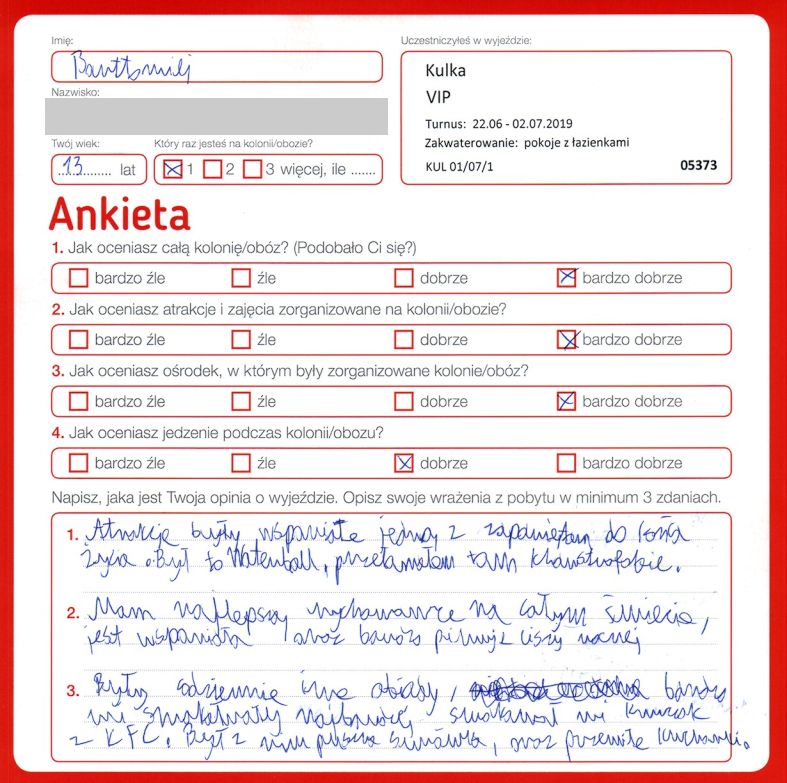 Imię:
Uczestniczyłeś w wyjeździe:
Barttomiej
Kulka
VIP
Nazwisko:
Turnus: 22.06 - 02.07.2019
Zakwaterowanie: pokoje z łazienkami
KUL 01/07/1 05373
Twój wiek: Który raz jesteś na kolonii/obozie?
13 lat 1 2 3 więcej, ile .......
Ankieta
1. Jak oceniasz całą kolonię/obóz? (Podobało Ci się?)
bardzo źle źle dobrze bardzo dobrze
2. Jak oceniasz atrakcje i zajęcia zorganizowane na kolonii/obozie?
bardzo źle źle dobrze bardzo dobrze
3. Jak oceniasz ośrodek, w którym były zorganizowane kolonie/obóz?
bardzo źle źle dobrze bardzo dobrze
4. Jak oceniasz jedzenie podczas kolonii/obozu?
bardzo źle źle dobrze bardzo dobrze
Napisz, jaka jest Twoja opinia o wyjeździe. Opisz swoje wrażenia z pobytu w minimum 3 zdaniach.
1. Atrakcje były wspaniałe jedną z zapamiętam do końca
życia. Był to Waterball, przełamałem tam
2. Mam najlepszą wychowawce na całym świecie,
jest wspaniała oraz bardzo pilnuje ciszy nocnej
3. Były codziennie inne obiady, bardzo
mi smakowały najbardziej smakował mi kurczak
z KFC. Był z nim pyszna surówka, oraz przemiłe kucharki.